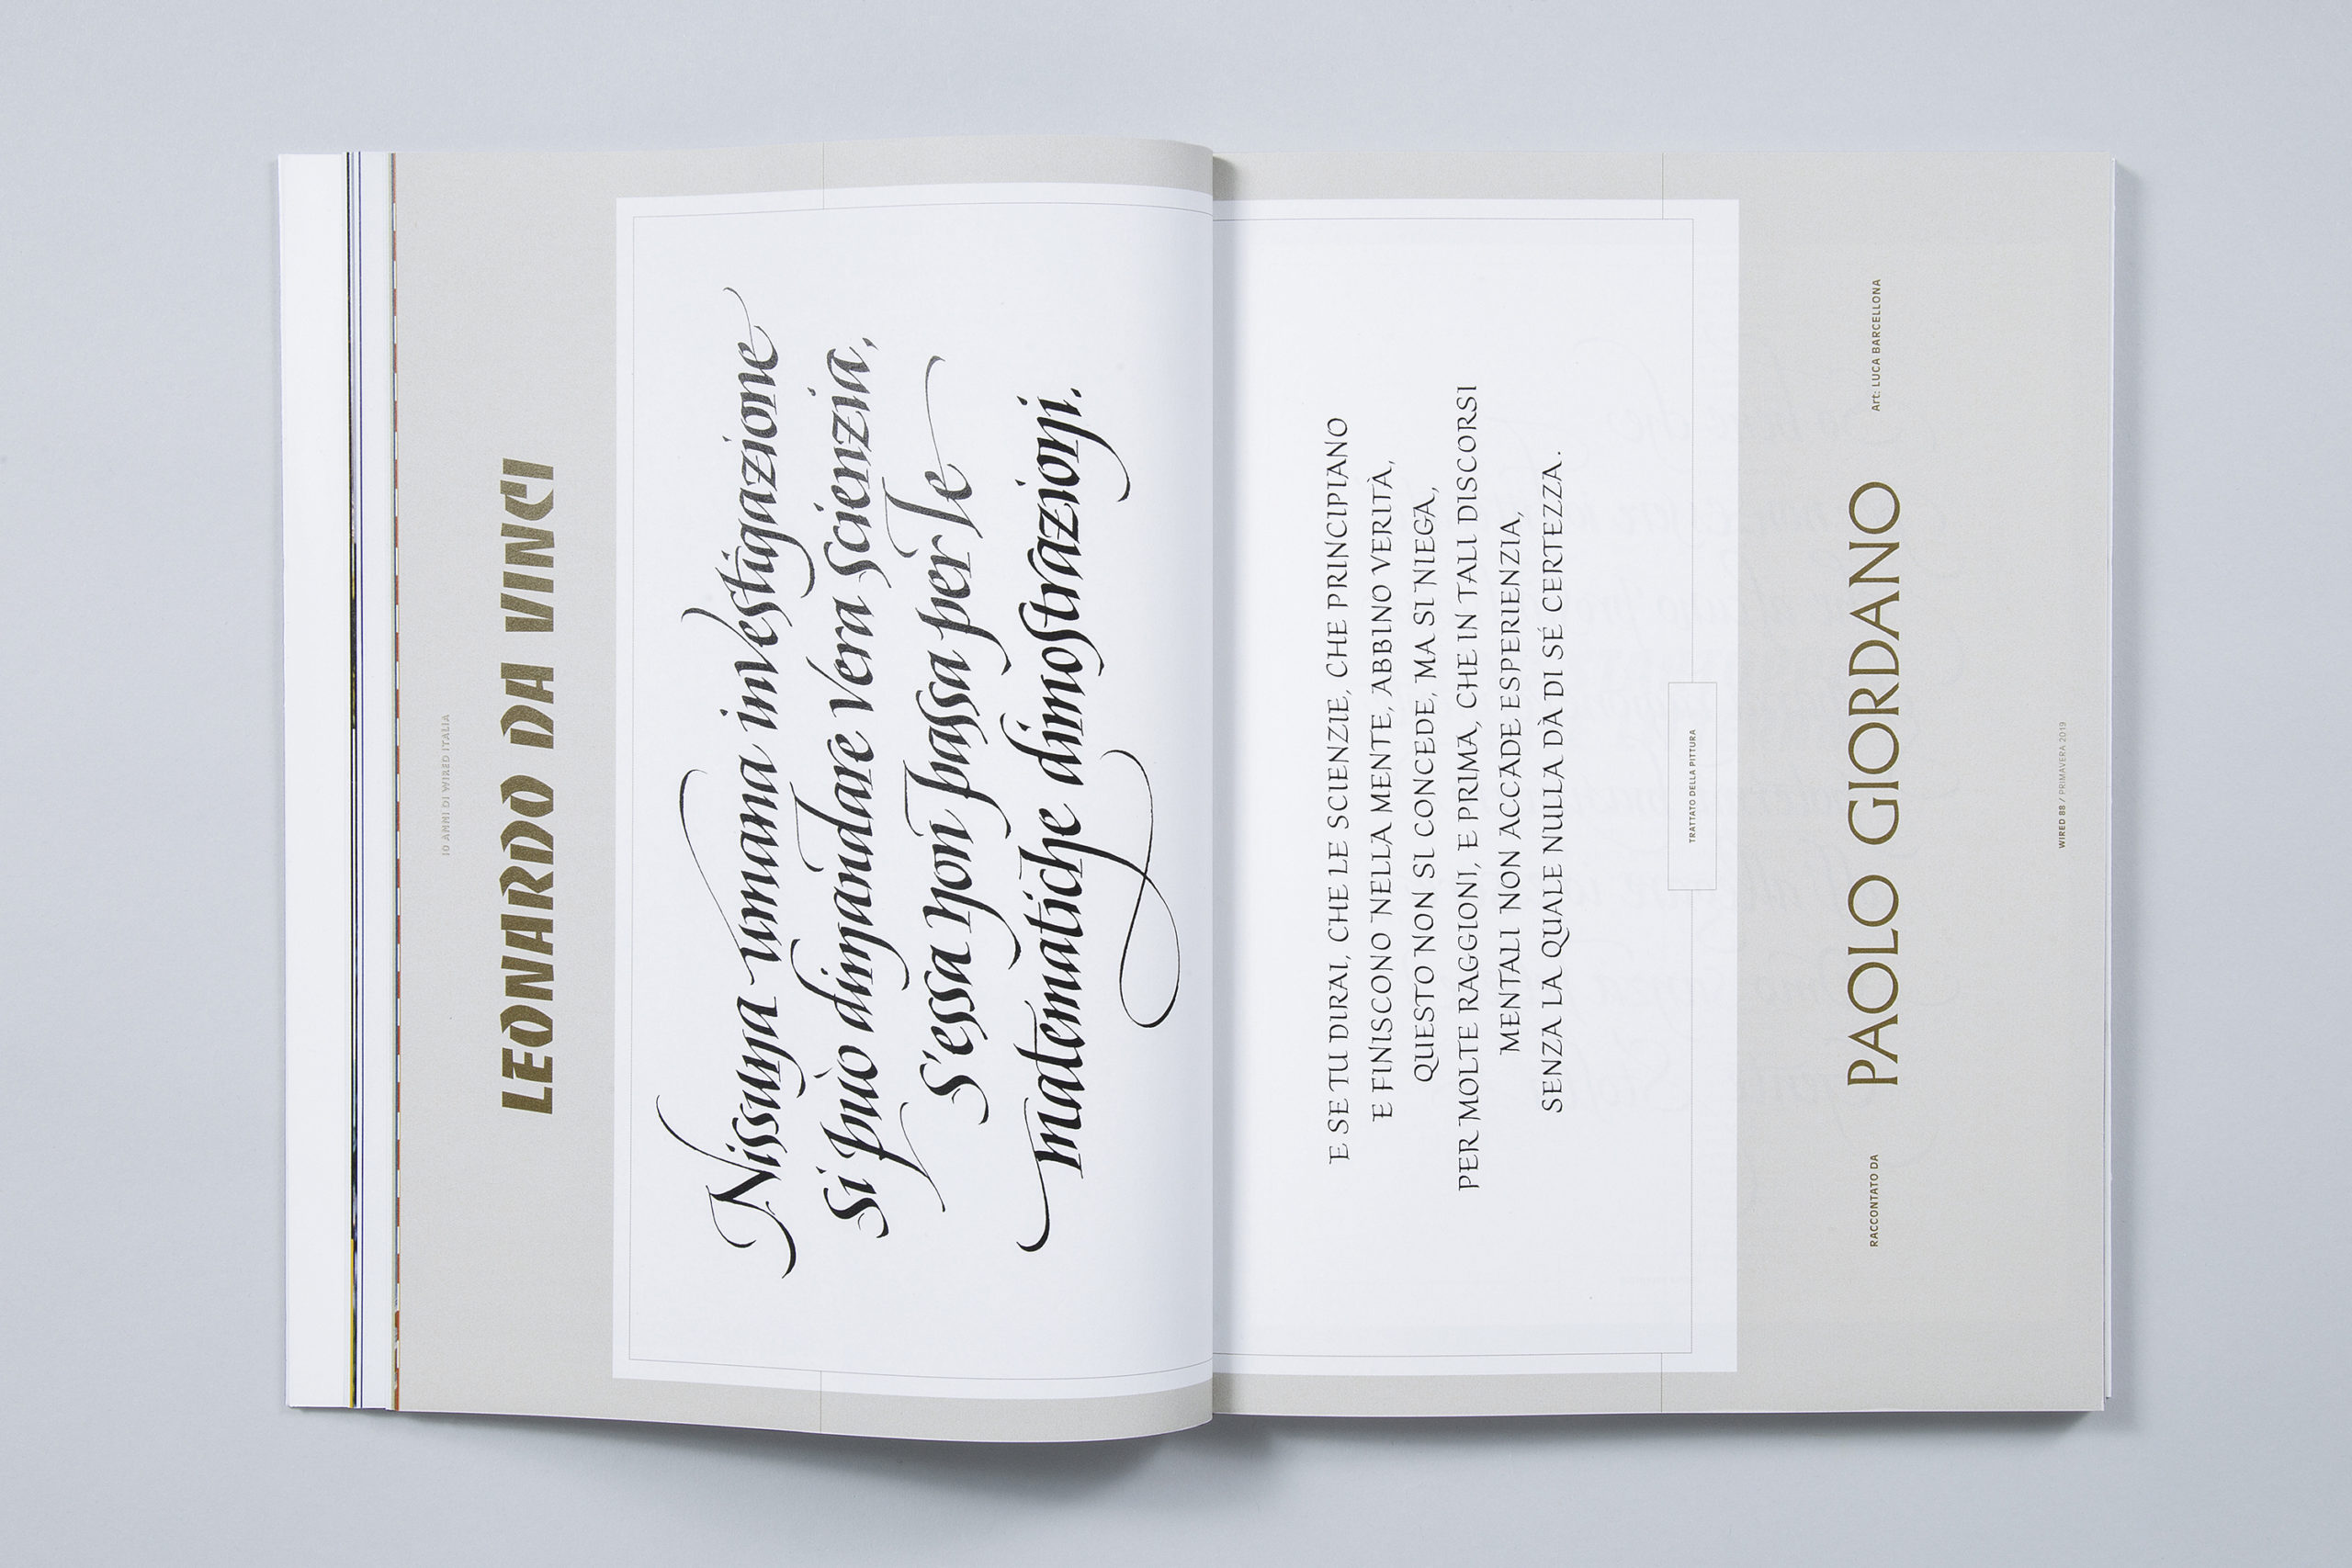 10 ANNI DI WIRED ITALIA
LEONARDO DA VINCI
Nissuna umana investigazione
si può dimandare vera scienzia,
s'essa non passa per le
matematiche dimostrazioni.
E SE TU DIRAI, CHE LE SCIENZIE, CHE PRINCIPIANO
E FINISCONO NELLA MENTE, ABBINO VERITÀ,
QUESTO NON SI CONCEDE, MA SI NIEGA,
PER MOLTE RAGGIONI, E PRIMA, CHE IN TALI DISCORSI
MENTALI NON ACCADE ESPERIENZIA,
SENZA LA QUALE NULLA DÀ DI SÉ CERTEZZA.
TRATTATO DELLA PITTURA
RACCONTATO DA PAOLO GIORDANO Art: LUCA BARCELLONA
WIRED 88 / PRIMAVERA 2019